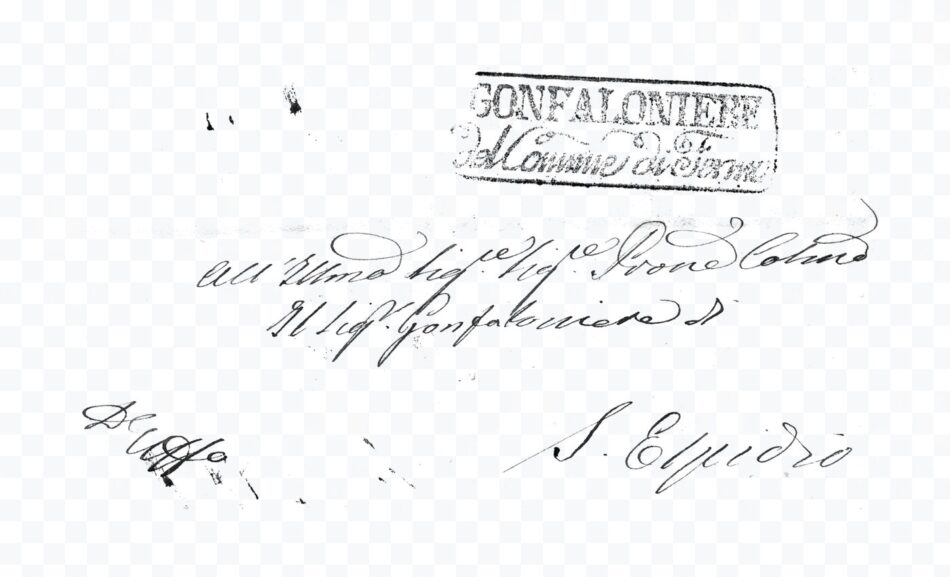 GONFALONIERE
Del Comune di Fermo
All'Illmo Sigre Sigre Prone Colmo
Il Sigr. Gonfaloniere di
S. Elpidio
De Uffo